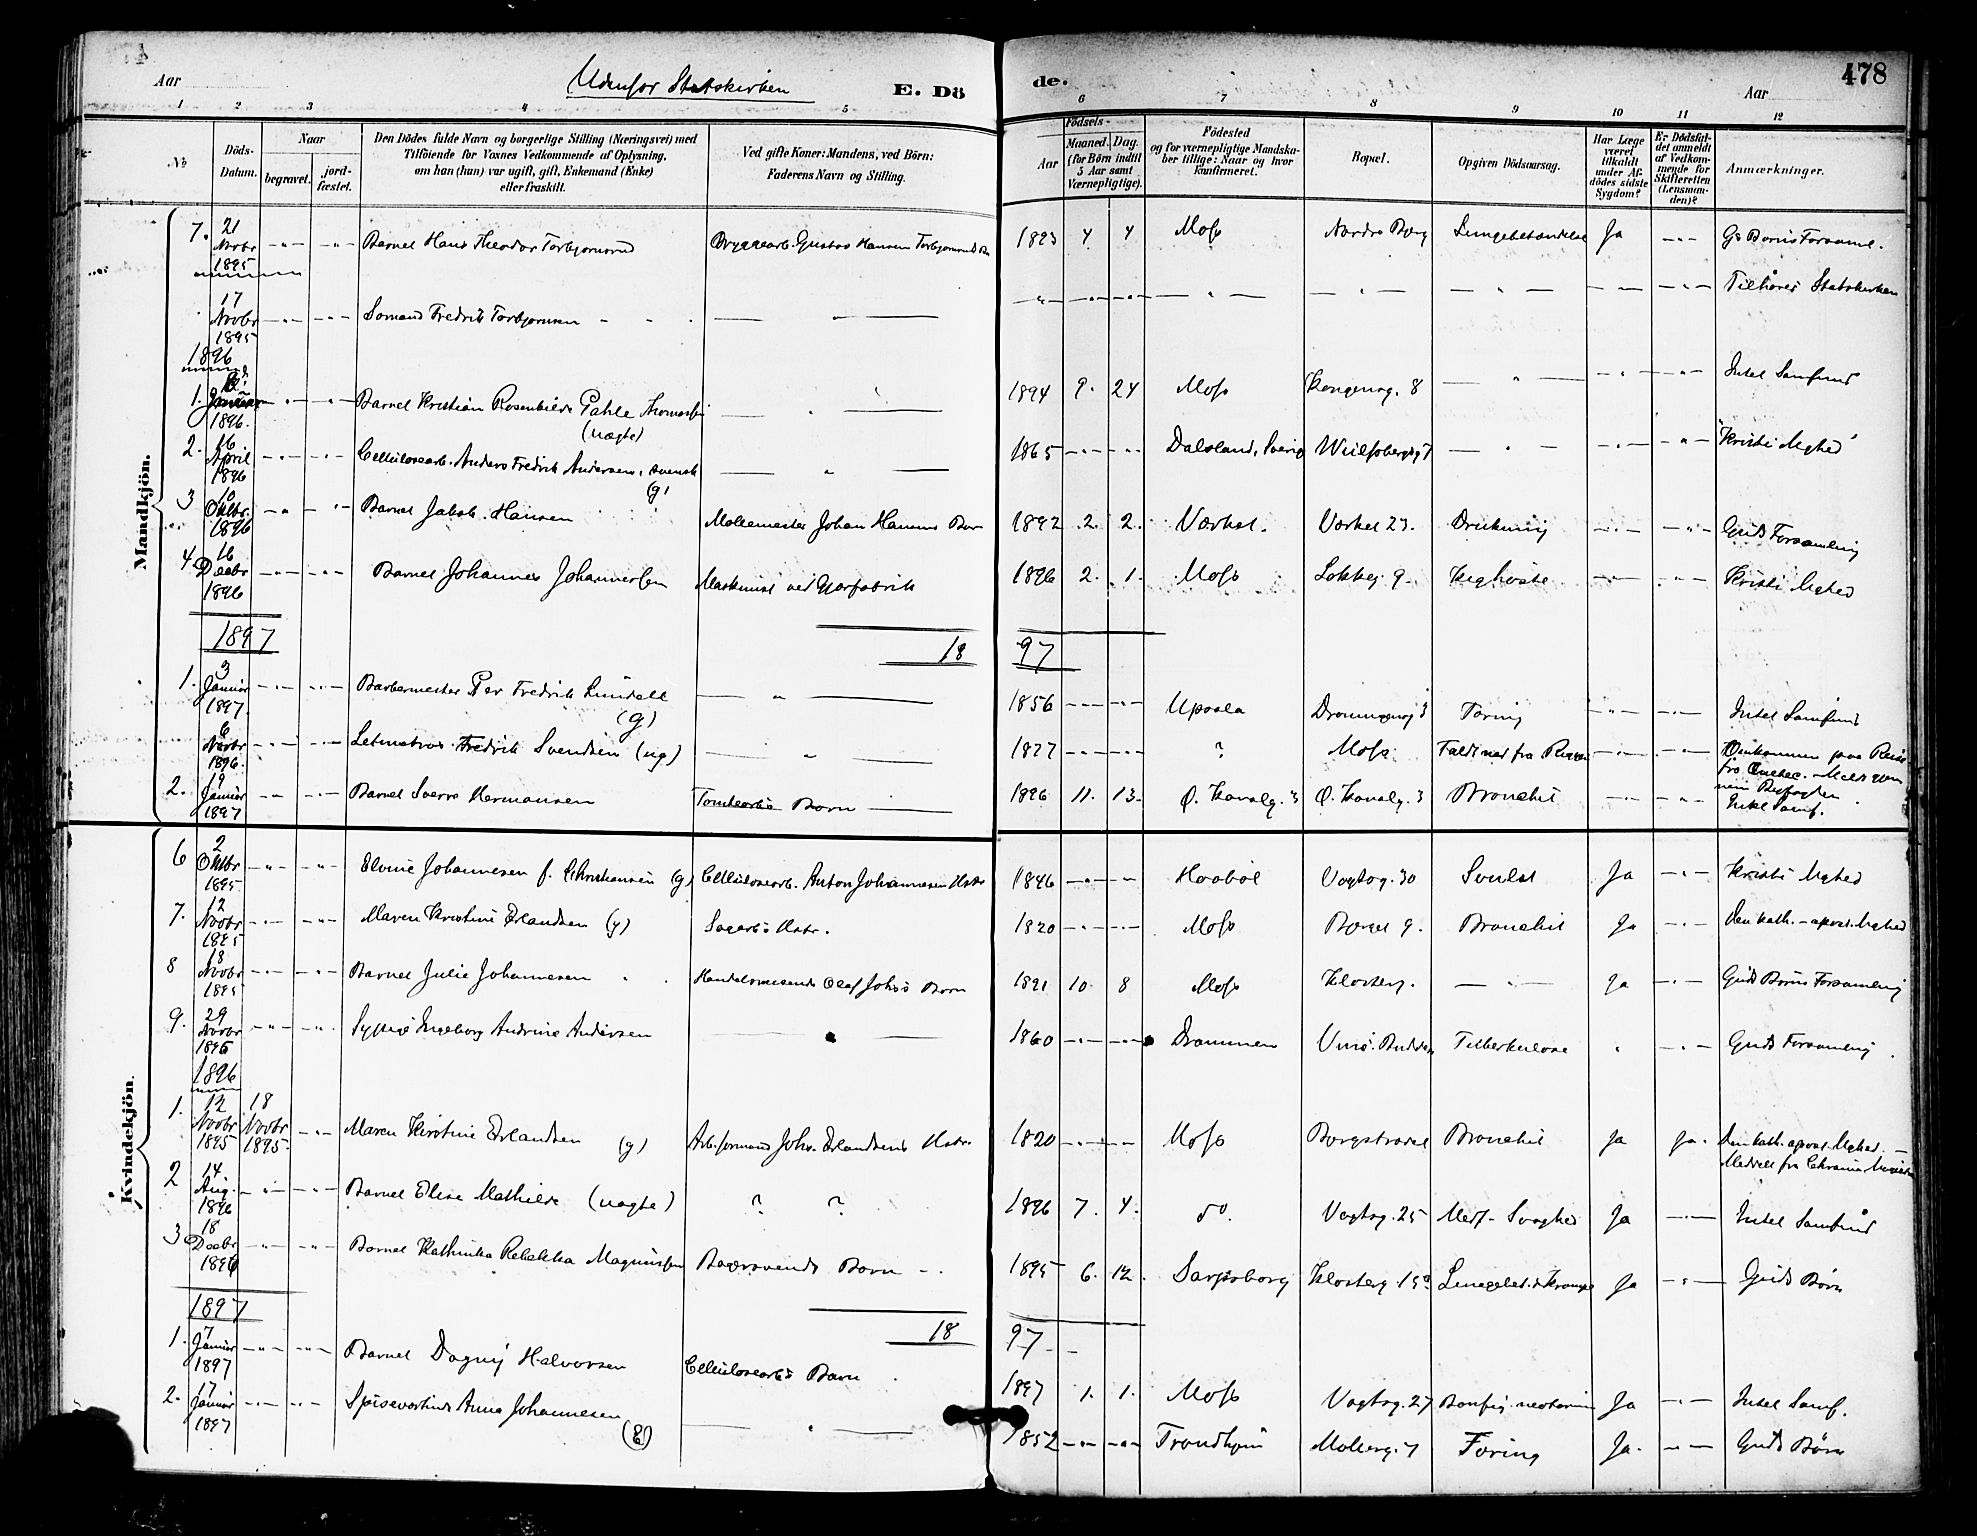 Aar
Udenfor Statskirken
E. Dö
de.
478
Aar
1 2 3 4 5 6 7 8 9 10 11 12
No
Döds-
Datum.
Naar
begravet.
jord-
fæstet.
Den Dödes fulde Navn og borgerlige Stilling (Næringsvei) med
Tilföiende for Voxnes Vedkommende af Oplysning,
om han (hun) var ugift, gift, Enkemand (Enke)
eller fraskilt.
Ved gifte Koner: Mandens, ved Börn:
Faderens Navn og Stilling.
Födsels-
Aar
Maaned. Dag.
(for Börn indtil
5 Aar samt
Værnepligtige).
Födested
og for værnepligtige Mandska-
ber tillige: Naar og hvor
konfirmeret.
Bopæl.
Opgiven Dödsaarsag.
Har Læge
været
tilkaldt
under Af-
dödes sidste
Sygdom?
Er Dödsfal-
det anmeldt
af Vedkom-
mende for
Skifteretten
(Lensman-
den)?
Anmærkninger.
Mandkjön.
7. 21 Novbr 1895 Barnet Hans Theodor Torbjornsrud Bryggearb. Gustav Hansen Torbjornsrud 1893 4 4 Moss Nordre Lungebetændelse Ja Gs Børns Forsaml.
17 Novbr 1895 Sømand Fredrik Torbjornsen Tilhører Statskirken
1896
1. Januar 1896. Barnet Kristian Rosenkilde Pahle Thomassen (uægte) 1894 9. 24 Moss Kongensg. 8 Intet Samfund
2. 16 April 1896 Cellulosearb. Anders Fredrik Andersen, svensk (g) 1865 Dalsland, Sverig 7 "Kristi Mghed"
3 10 Oktbr. 1896 Barnet Jakob Hansen Johan Hansens Barn 1892 2. 2. Værket. Værket 23. Drukning Guds Forsamling
4 16 Decbr 1896 Barnet Johannes Johannessen Maskinist ved Gjærfabrik 1896 2. 1. Moss Lokkeg. 9. Kighoste Kristi Mghed
1897
18 97
1. 3 Januar 1897. Barbermester Per Fredrik Lundell (g) 1856 Upsala Dronningsg 3 Tæring Intet Samfund
6 Novbr 1896. Letmatros Fredrik Svendsen (ug) 1877 ? Moss. Faldt ned fra Omkommen paa Reise
fra Quebec. Meldt gjen
nem Byfogden
2. 19 Januar 1897 Barnet Sverre Hermansen Tomtearb.s Barn 1896 11. 13. Ø. Kanalg. 3 Ø. Kanalg. 3 Bronchit Intet Samf.
Kvindekjön.
6 2 Oktbr 1895 Elvine Johannesen f. Christiansen (g) Cellulosearb. Anton Johannesen Hstr 1846 Haabøl Vogtsg. 30 Svulst Ja Kristi Mghed
7. 12 Novbr 1895 Maren Kristine Erlandsen (g) Sagarb.s Hstr. 1820 Moss 9. Bronchit Ja Den kath.-apost. Mghed
8 18 Novbr 1895 Barnet Julie Johannesen Handelsreisende Olaf Johs.s Barn 1891 10. 8 Moss Klosterg. Ja Guds Børns Forsamling
9. 29 Novbr 1895 Ingeborg Andrine Andersen 1860 Drammen Tuberkulose Guds Forsamling
1896
1. 12 Novbr 1895 18 Novbr 1895 Maren Kirstine Erlandsen (g) Arb.formand Johs. Erlandsens Hstr. 1820 Moss Borgstrædet Bronchit Ja Ja. Den kath. apost. Mghed. —
Meldt fra
2 14 Aug. 1896 Barnet Elise Mathilde (uægte) ? ? 1896 7. 4. do. Vogtsg. 25 Medf. Svaghed Ja Intet Samfund
3 18 Decbr 1896 Barnet Kathinka Rebekka Magnussen Barn 1895 6. 12. Sarpsborg Klosterg. Lungebet. & Krampe Ja Guds Børn
1897
18 97
1. 7 Januar 1897 Barnet Dagny Halvorsen Cellulosearb.s Barn 1897 1. 1. Moss Vogtsg. 27 Ja Intet Samf.
2. 17 Januar 1897 Spisevertinde Anna Johannesen (E) 1852 Trondhjem 7 Tæring Ja. Guds Børn